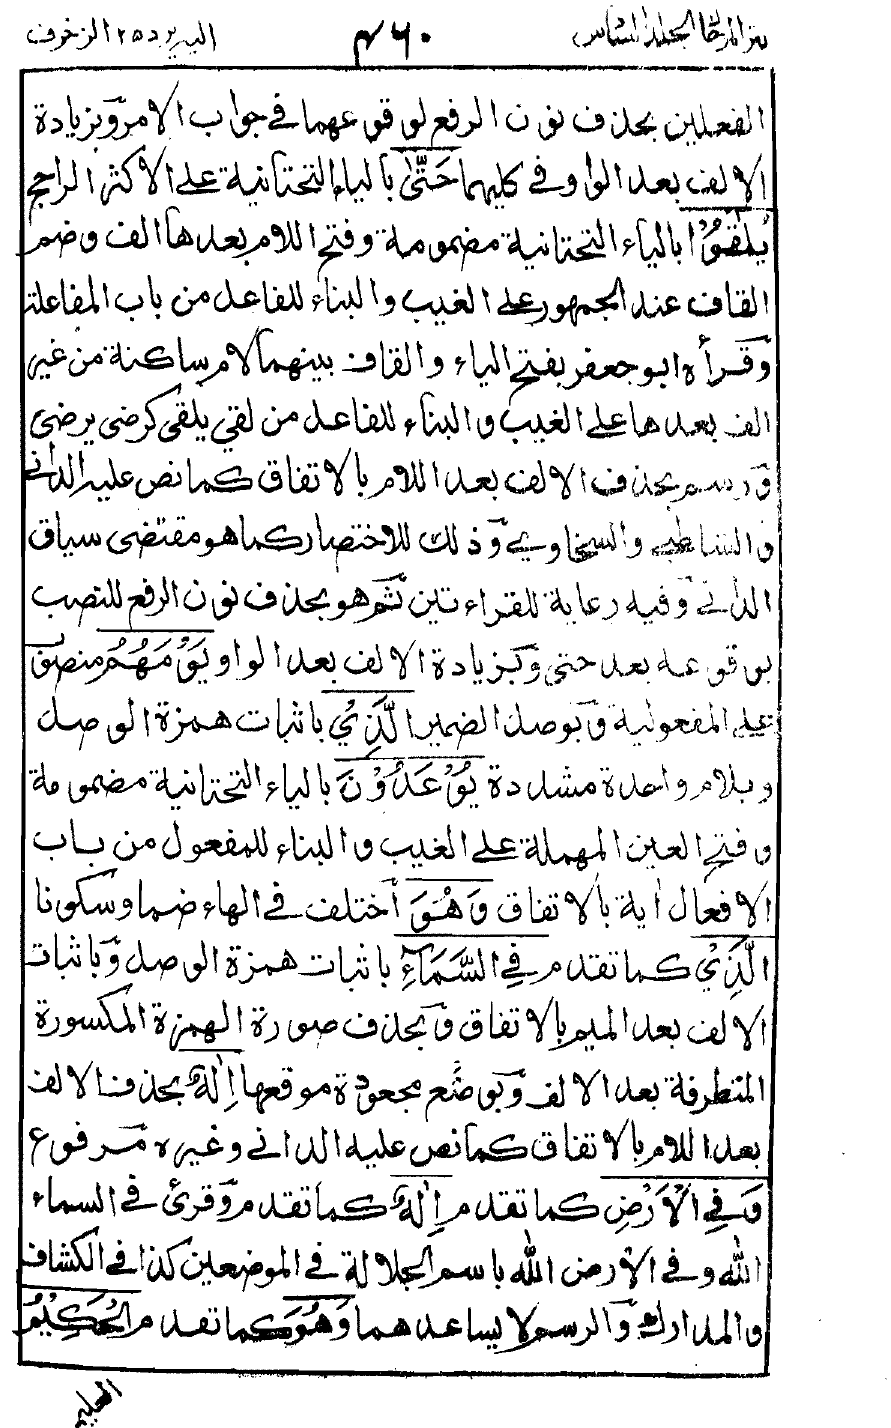 نثر المرجان المجلد السادس ٤٦٠ اليه يرد ٢٥ الزخرف
الفعلين بحذف نون الرفع لوقوعهما في جواب الامر وبزيادة
الالف بعد الواو في كليهما حَتّٰى بالياء التحتانية على الاكثر الراجح
يُلٰقُوْا بالياء التحتانية مضمومة وفتح اللام بعدها الف وضم
القاف عند الجمهور على الغيب والبناء للفاعل من باب المفاعلة
وقرأه ابو جعفر بفتح الياء والقاف بينهما لام ساكنة من غير
الف بعدها على الغيب والبناء للفاعل من لقي يلقى كرضى يرضى
ورسم بحذف الالف بعد اللام بالاتفاق كما نص عليه الداني
والشاطبي والسخاوي وذلك للاختصار كما هو مقتضى سياق
الداني وفيه رعاية للقراءتين ثم هو بحذف نون الرفع للنصب
بوقوعه بعد حتى وبزيادة الالف بعد الواو يَوْمَهُمُ منصوب
على المفعولية وبوصل الضمير الَّذِيْ باثبات همزة الوصل
وبلام واحدة مشددة يُوْعَدُوْنَ بالياء التحتانية مضمومة
وفتح العين المهملة على الغيب والبناء للمفعول من باب
الافعال اية بالاتفاق وَهُوَ اختلف في الهاء ضما وسكونا
الَّذِيْ كما تقدم فِي السَّمَآءِ باثبات همزة الوصل وباثبات
الالف بعد الميم بالاتفاق وبحذف صورة الهمزة المكسورة
المتطرفة بعد الالف وبوضع مجعودة موقعها اِلٰهٌ بحذف الالف
بعد اللام بالاتفاق كما نص عليه الداني وغيره مرفوع
وَفِي الْاَرْضِ كما تقدم اِلٰهٌ كما تقدم وقرئ في السماء
الله وفي الارض الله باسم الجلالة في الموضعين كذا في الكشاف
والمدارك والرسم لا يساعدهما وَهُوَ كما تقدم الْحَكِيْمُ
العليم